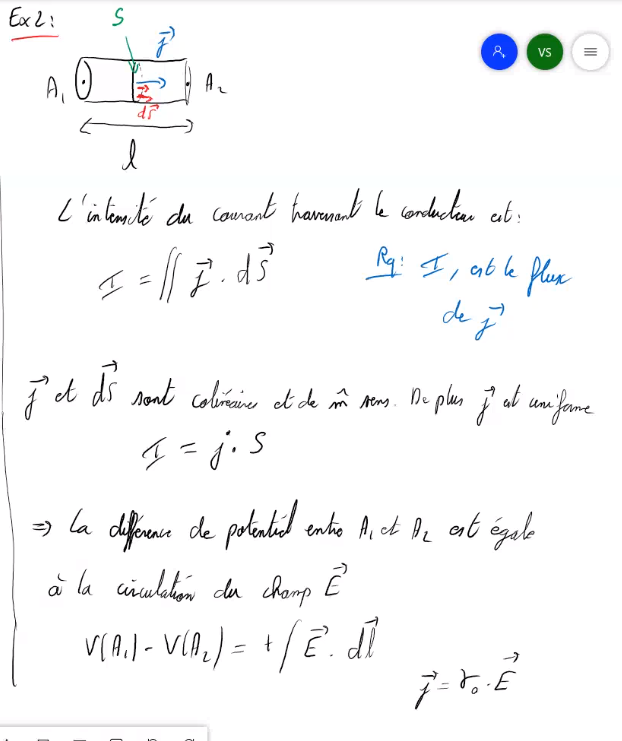 Ex 2:
S
j⃗
A₁
A₂
dS⃗
l
L'intensité du courant traversant le conducteur est:
I = ∬ j⃗ . dS⃗
Rq: I, est le flux
de j⃗
j⃗ et dS⃗ sont colinéaires et de m̂ sens. De plus j⃗ est uniforme
I = j . S
⇒ La différence de potentiel entre A₁ et A₂ est égale
à la circulation du champ E⃗
V(A₁) - V(A₂) = + ∫ E⃗ . dl⃗
j⃗ = γ₀ . E⃗
VS